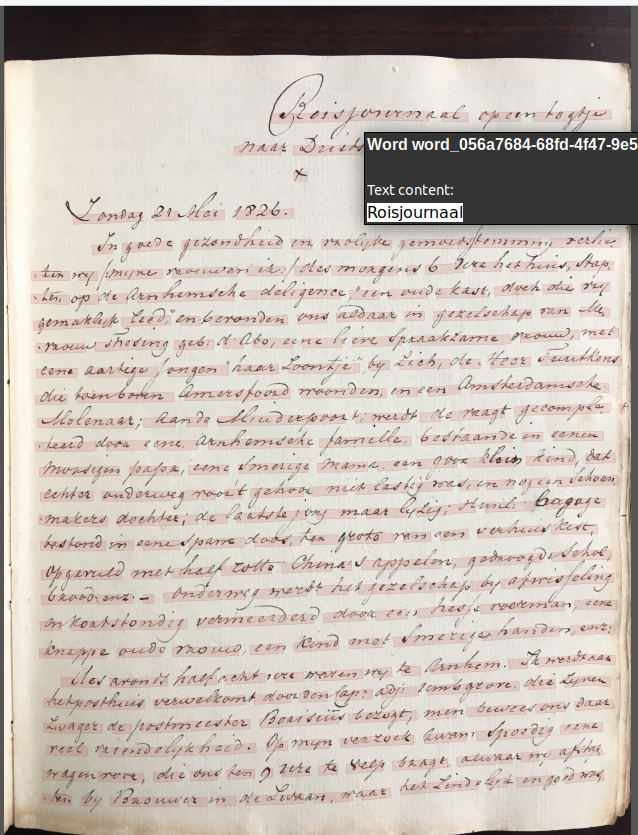 Roisjournaal op een togtje
naar Duits
Word word_056a7684-68fd-4f47-9e5
Text content:
Roisjournaal
x
Zondag 21 Mei 1826.
In goede gezondheid en vrolyke gemoedstemming verlie-
ten wy (myne vrouw en ik) des morgens 6 Ure het huis, stap-
ten op de Arnhemsche deligence, "een oude kast, doch die vry
gemaklyk reed," en bevonden ons aldaar in gezelschap van Me
vrouw geb: d'Abo, eene lieve spraakzame vrouw, met
eene aartige jongen "haar Zoontje" by zich, de Heer
die toen boven Amersfoord woonden, en een Amsterdamsche
Molenaar; aan de Muiderpoort, werdt de vragt gecomple
teerd door eene Arnhemsche famielle, bestaande in eenen
morsigen papa, eene smerige mama, een goor klein kind, dat
echter onderweg voor 't gehoor niet lastig was, en nog een schoen
makers dochter; de laatste vry maar Bagage
bestond in eene spane doos, ter groote van een verhuis kist,
opgevuld met half rotte China's appelen, gedroogde schol,
brood enz. – onderweg werdt het gezelschap by afwisseling
onkortstondig vermeerderd door een voerman, eene
knappe oude vrouw, een kind met smerige handen, enz:
Des avonds half acht ure waren wy te Arnhem. Ik werdt aan
het posthuis verwelkomt door den Cap: adj: die Zynen
Zwager de postmeester bezogt, men bewees ons daar
veel vriendelykheid. Op myn verzoek kwam spoedig eene
wagen voor, die ons ten 9 Ure te velp bragt, alwaar wy afstap
ten by Brouwer in de Zwaan, waar het Zindelyk en goed was